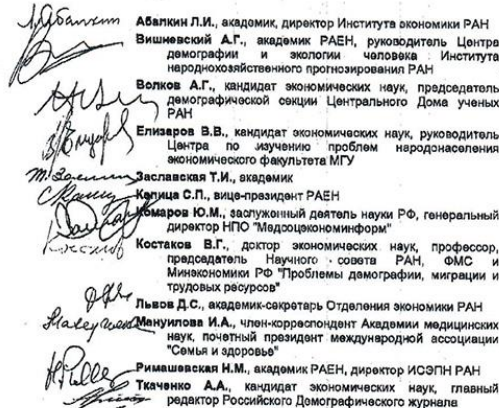 Абалкин Л.И., академик, директор Института экономики РАН
Вишневский А.Г., академик РАЕН, руководитель Центра
демографии и экологии человека Института
народнохозяйственного прогнозирования РАН
Волков А.Г., кандидат экономических наук, председатель
демографической секции Центрального Дома ученых
РАН
Елизаров В.В., кандидат экономических наук, руководитель
Центра по изучению проблем народонаселения
экономического факультета МГУ
Заславская Т.И., академик
Капица С.П., вице-президент РАЕН
Комаров Ю.М., заслуженный деятель науки РФ, генеральный
директор НПО "Медсоцэкономинформ"
Костаков В.Г., доктор экономических наук, профессор,
председатель Научного совета РАН, ФМС и
Минэкономики РФ "Проблемы демографии, миграции и
трудовых ресурсов"
Львов Д.С., академик-секретарь Отделения экономики РАН
Мануилова И.А., член-корреспондент Академии медицинских
наук, почетный президент международной ассоциации
"Семья и здоровье"
Римашевская Н.М., академик РАЕН, директор ИСЭПН РАН
Ткаченко А.А., кандидат экономических наук, главный
редактор Российского Демографического журнала